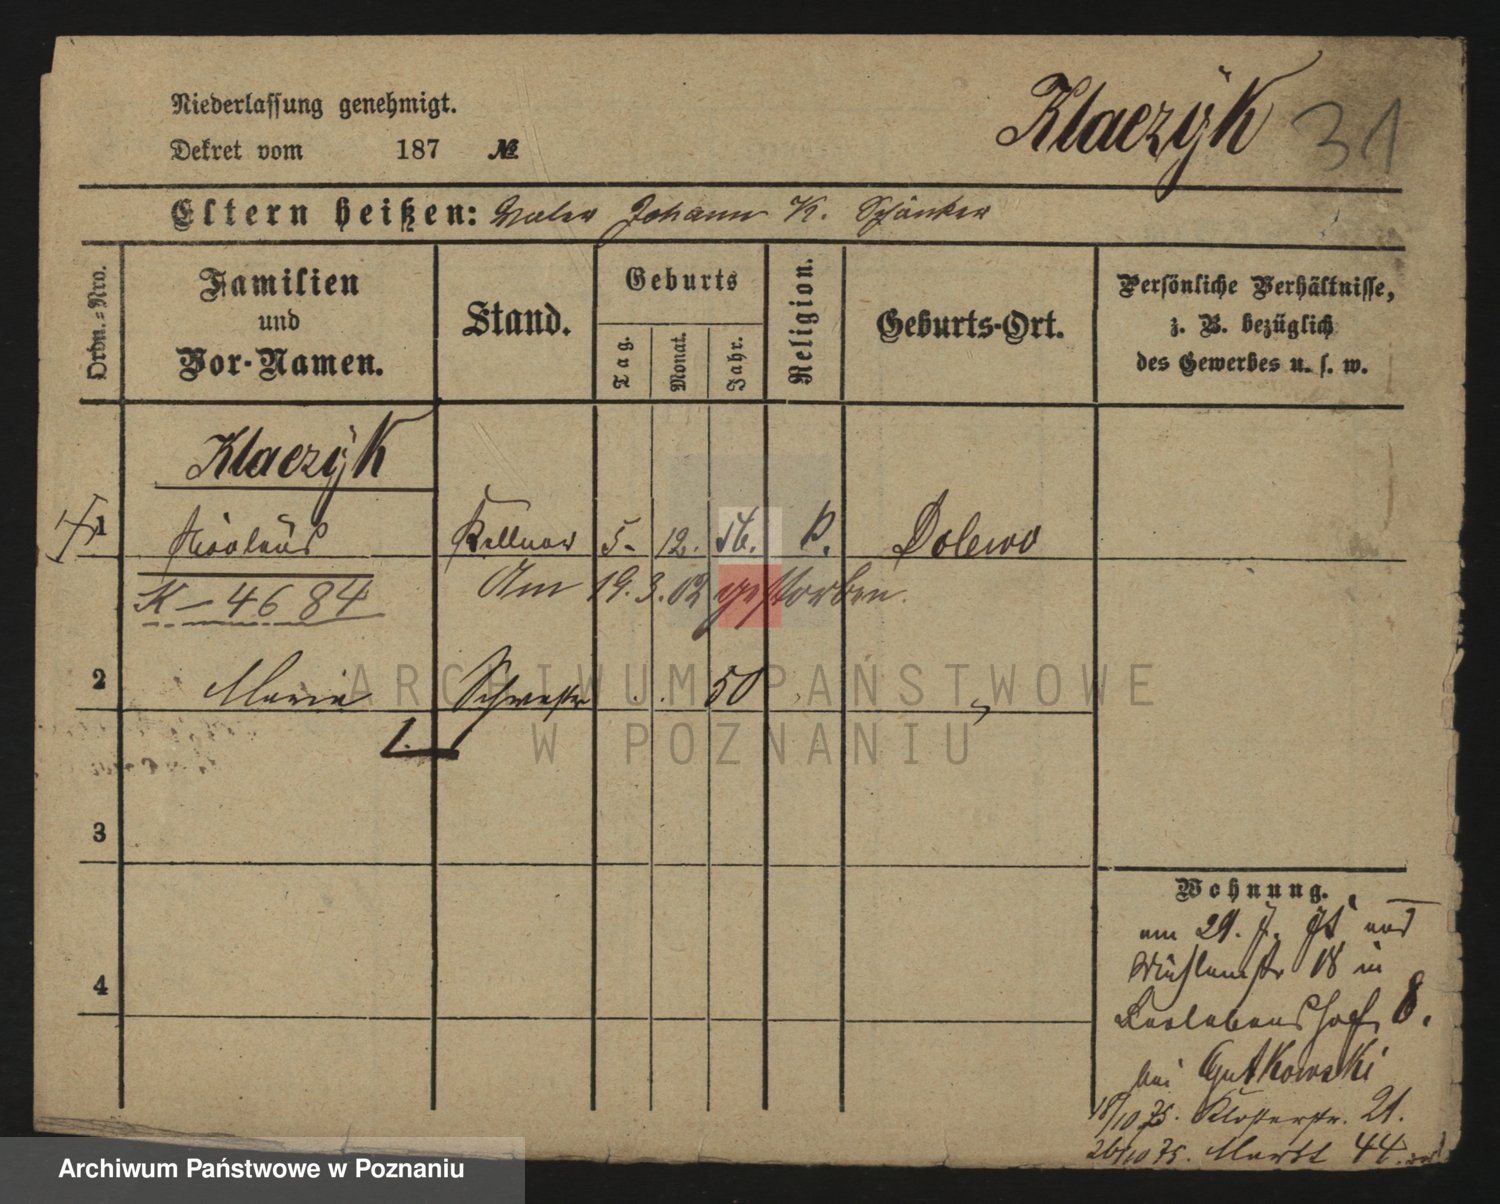 Klaczÿk 31
Niederlassung genehmigt.
Dekret vom 187 №
Eltern heißen: Vater Johann K. Schänker
Ordn.=Nro.
Familien
und
Vor-Namen.
Stand.
Geburts
Tag.
Monat.
Jahr.
Religion.
Geburts-Ort.
Persönliche Verhältnisse,
z. B. bezüglich
des Gewerbes u. s. w.
Klaczÿk
1 Nicolaus Kellner 5. 12. 56. k. Dolewo
Am 19. 3. 02 gestorben.
K-4684
2 Marie Schwester 50
1.
3
4
Wohnung.
am 29. 7. 75 von
18 in
8.
bei Gutkowski
18/10 75. Klosterstr. 21.
26/10 75. Markt 44.
ARCHIWUM PAŃSTWOWE
W POZNANIU
Archiwum Państwowe w Poznaniu